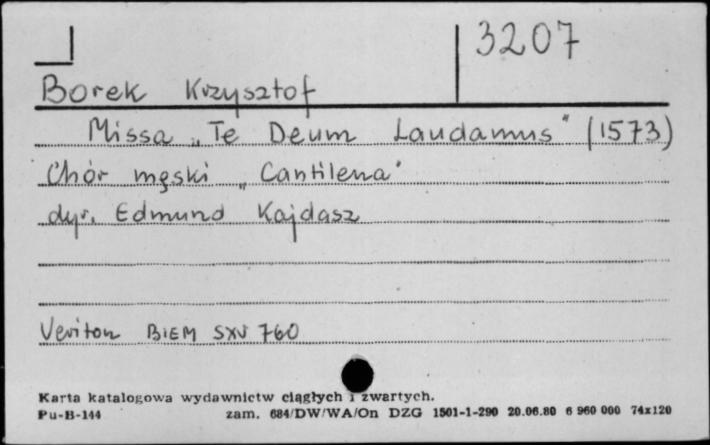 3207
Borek Krzysztof
Missa „Te Deum Laudamus" (1573)
Chór męski „Cantilena"
dyr. Edmund Kajdasz
Veriton BIEM SXV 760
Karta katalogowa wydawnictw ciągłych i zwartych.
Pu-B-144 zam. 684/DW/WA/On DZG 1501-1-290 20.06.80 6 960 000 74x120